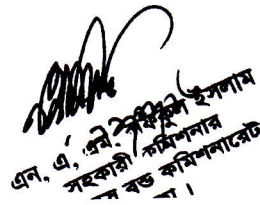 এন, এ, এম. রফিকুল ইসলাম
সহকারী কমিশনার
বন্ড কমিশনারেট